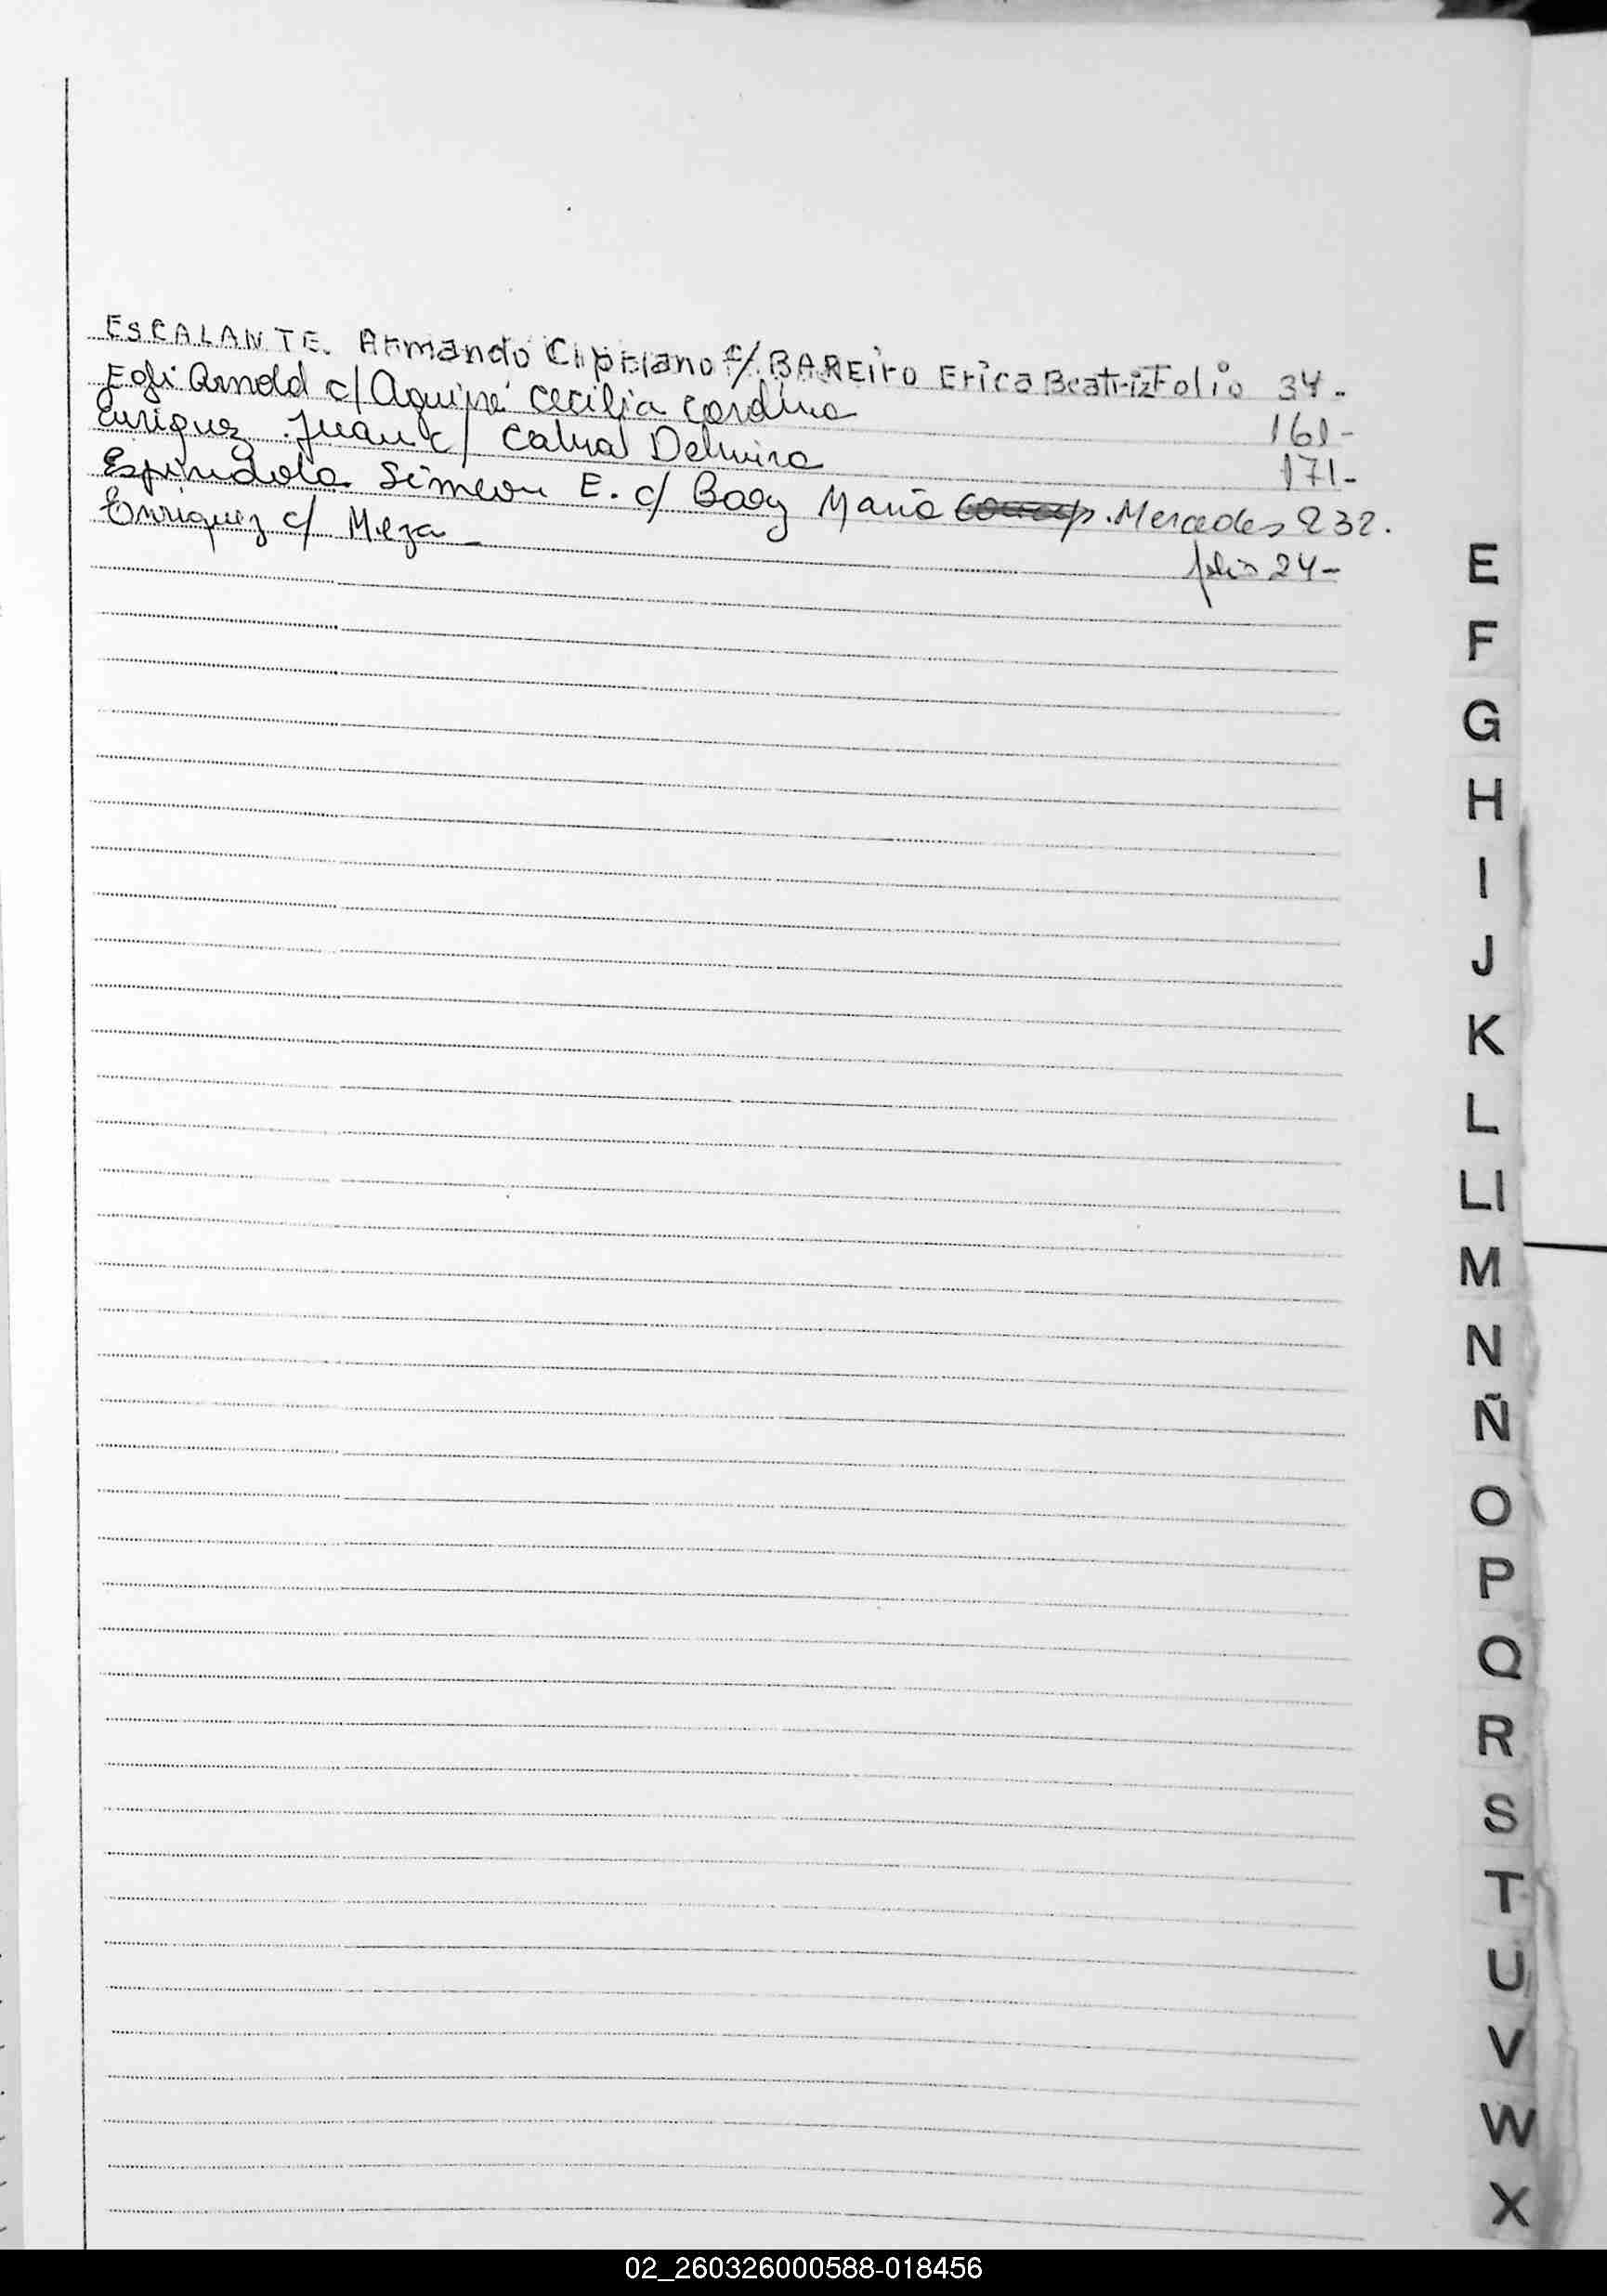 ESCALANTE. Armando Cipriano c/ BAREiro Erica Beatriz Folio 34.-
Egli Arnold c/ Aguirre Cecilia 161-
Enriquez Juan c/ Cabral Delmira 171-
Espindola Simeon E. c/ Baez Maria Mercedes 232.
Enriquez c/ Meza - folio 24-
E
F
G
H
I
J
K
L
Ll
M
N
Ñ
O
P
Q
R
S
T
U
V
W
X
02_260326000588-018456